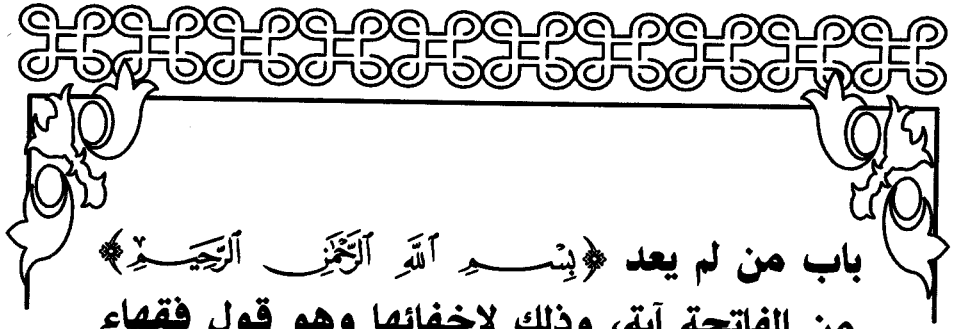 باب من لم يعد ﴿بِسْمِ ٱللَّهِ ٱلرَّحْمَٰنِ ٱلرَّحِيمِ﴾
من الفاتحة آية، وذلك لإخفائها وهو قول فقهاء